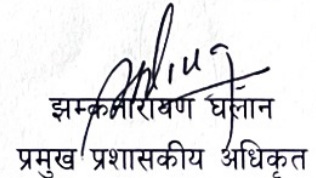 झमकनारायण घलान
प्रमुख प्रशासकीय अधिकृत